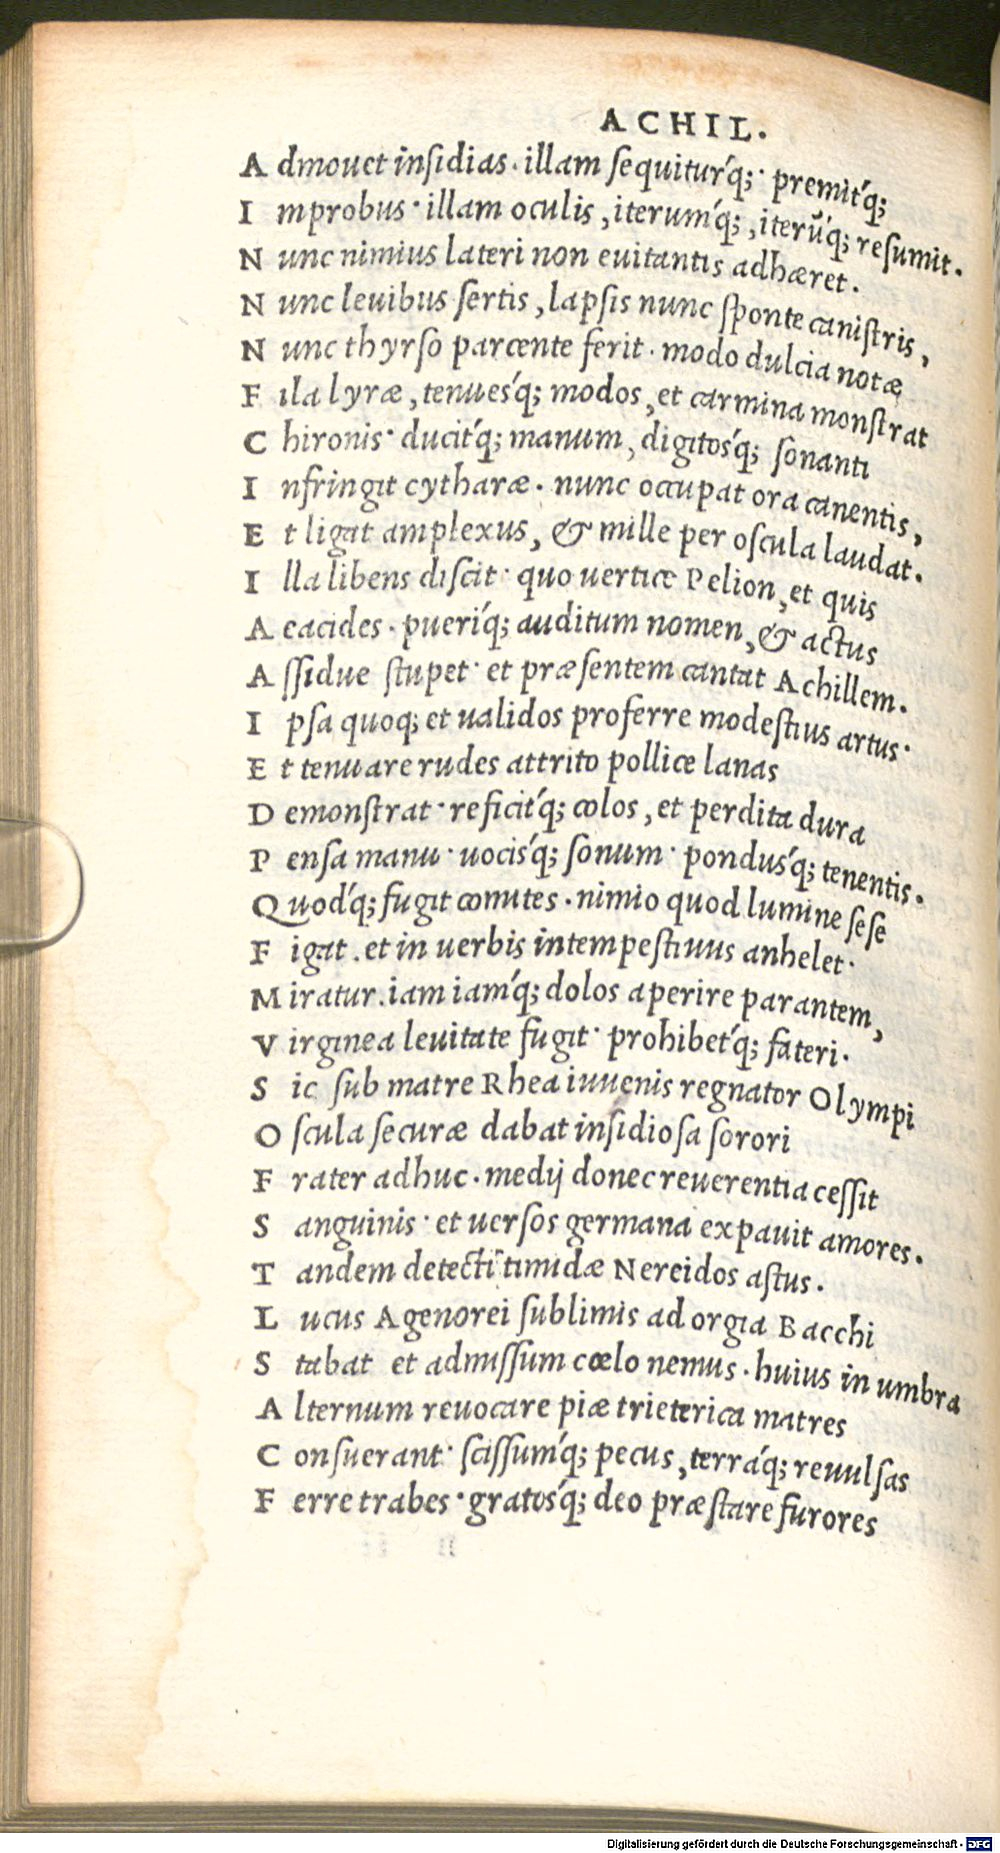 ACHIL.
A dmouet insidias. illam sequitur´q;· premit´q;
I mprobus· illam oculis, iterum´q;, iterū´q; resumit.
N unc nimius lateri non euitantis adhæret.
N unc leuibus sertis, lapsis nunc sponte canistris,
N unc thyrso parcente ferit. modo dulcia notæ
F ila lyræ, tenues´q; modos, et carmina monstrat
C hironis· ducit´q; manum, digitos´q; sonanti
I nfringit cytharæ. nunc occupat ora canentis,
E t ligat amplexus, & mille per oscula laudat.
I lla libens discit· quo uertice Pelion, et quis
A eacides. pueri´q; auditum nomen, & actus
A ssidue stupet· et præsentem cantat Achillem.
I psa quoq; et ualidos proferre modestius artus·
E t tenuare rudes attrito pollice lanas
D emonstrat· reficit´q; colos, et perdita dura
P ensa manu· uocis´q; sonum· pondus´q; tenentis.
Q uod´q; fugit comites. nimio quod lumine sese
F igat. et in uerbis intempestiuus anhelet·
M iratur. iam iam´q; dolos aperire parantem,
V irginea leuitate fugit· prohibet´q; fateri.
S ic sub matre Rhea iuuenis regnator Olympi
O scula securæ dabat insidiosa sorori
F rater adhuc. medij donec reuerentia cessit
S anguinis· et uersos germana expauit amores.
T andem detecti timidæ Nereidos astus.
L ucus Agenorei sublimis ad orgia Bacchi
S tabat et admissum cœlo nemus. huius in umbra
A lternum reuocare piæ trieterica matres
C onsuerant· scissum´q; pecus, terra´q; reuulsas
F erre trabes· gratos´q; deo præstare furores
Digitalisierung gefördert durch die Deutsche Forschungsgemeinschaft · DFG